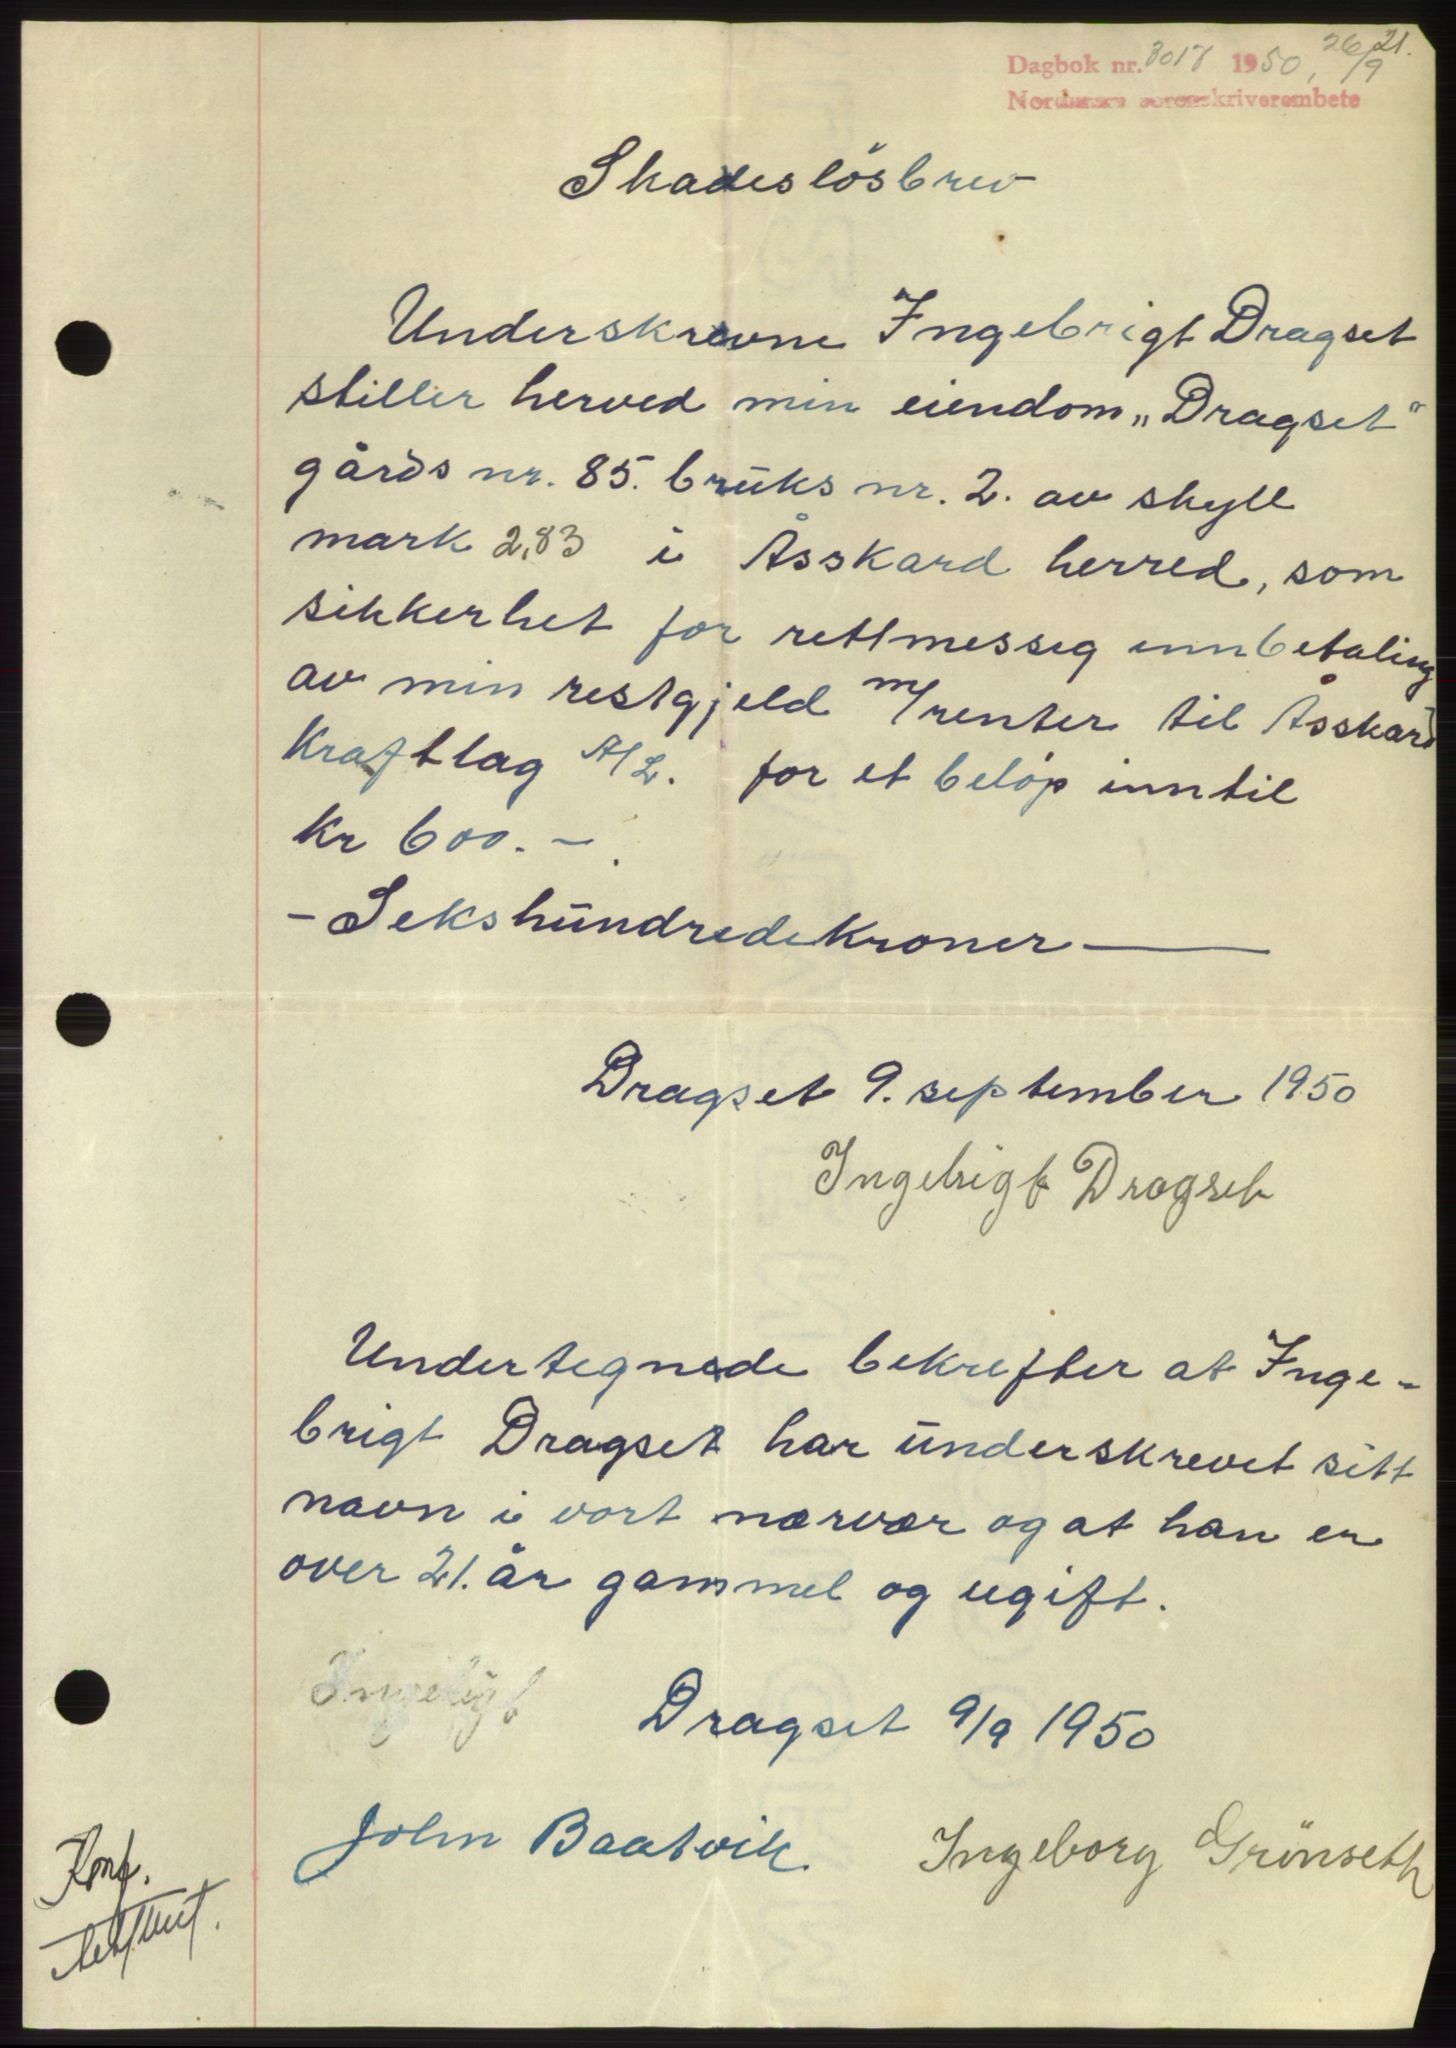 21.
Dagbok nr. 3017 1950, 26/9
Nordmøre sorenskriverembete
Skadeslösbrev
Underskrevne Ingebrigt Dragset
stiller herved min eiendom „Dragset"
gårds nr. 85. bruks nr. 2. av skyll
mark 2,83 i Åsskard herred, som
sikkerhet for rettmessig innbetaling
av min restgjeld m/renter til Åsskard
Kraftlag A/L. for et beløp inntil
kr 600.-.
- Sekshundredekroner -
Dragset 9. september 1950
Ingebrigt Dragset
Undertegnede bekrefter at Inge-
brigt Dragset har underskrevet sitt
navn i vort nærvær og at han er
over 21. år gammel og ugift.
Ingebrigt
Dragset 9/9 1950
John Baatvik Ingeborg Grönseth
Konf.